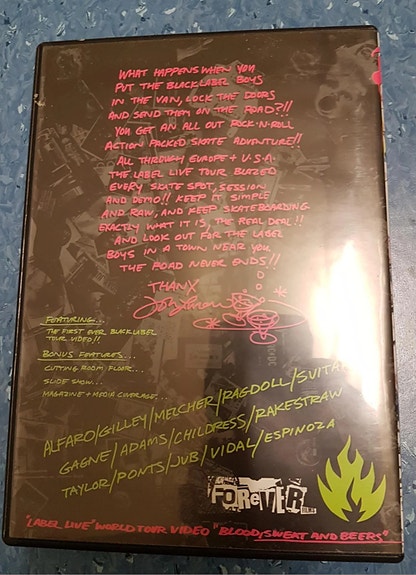 WHAT HAPPENS WHEN YOU
PUT THE BLACKLABEL BOYS
IN THE VAN, LOCK THE DOORS
AND SEND THEM ON THE ROAD?!!
YOU GET AN ALL OUT ROCK·N·ROLL
ACTION PACKED SKATE ADVENTURE!!
ALL THROUGH EUROPE + U·S·A·
THE LABEL LIVE TOUR BLAZED
EVERY SKATE SPOT, SESSION
AND DEMO!! KEEP IT SIMPLE
AND RAW, AND KEEP SKATEBOARDING
EXACTLY WHAT IT IS, THE REAL DEAL!!
AND LOOK OUT FOR THE LABEL
BOYS IN A TOWN NEAR YOU
THE ROAD NEVER ENDS!!
THANX
FEATURING...
THE FIRST EVER BLACKLABEL
TOUR VIDEO!!
BONUS FEATURES...
CUTTING ROOM FLOOR...
SLIDE SHOW...
MAGAZINE + MEDIA COVERAGE...
ALFARO/GILLEY/MELCHER/RAGDOLL/SUITAR
GAGNE/ADAMS/CHILDRESS/RAKESTRAW
TAYLOR/PONTS/JUB/VIDAL/ESPINOZA
FOREVER
"LABEL LIVE" WORLD TOUR VIDEO "BLOOD, SWEAT AND BEERS"